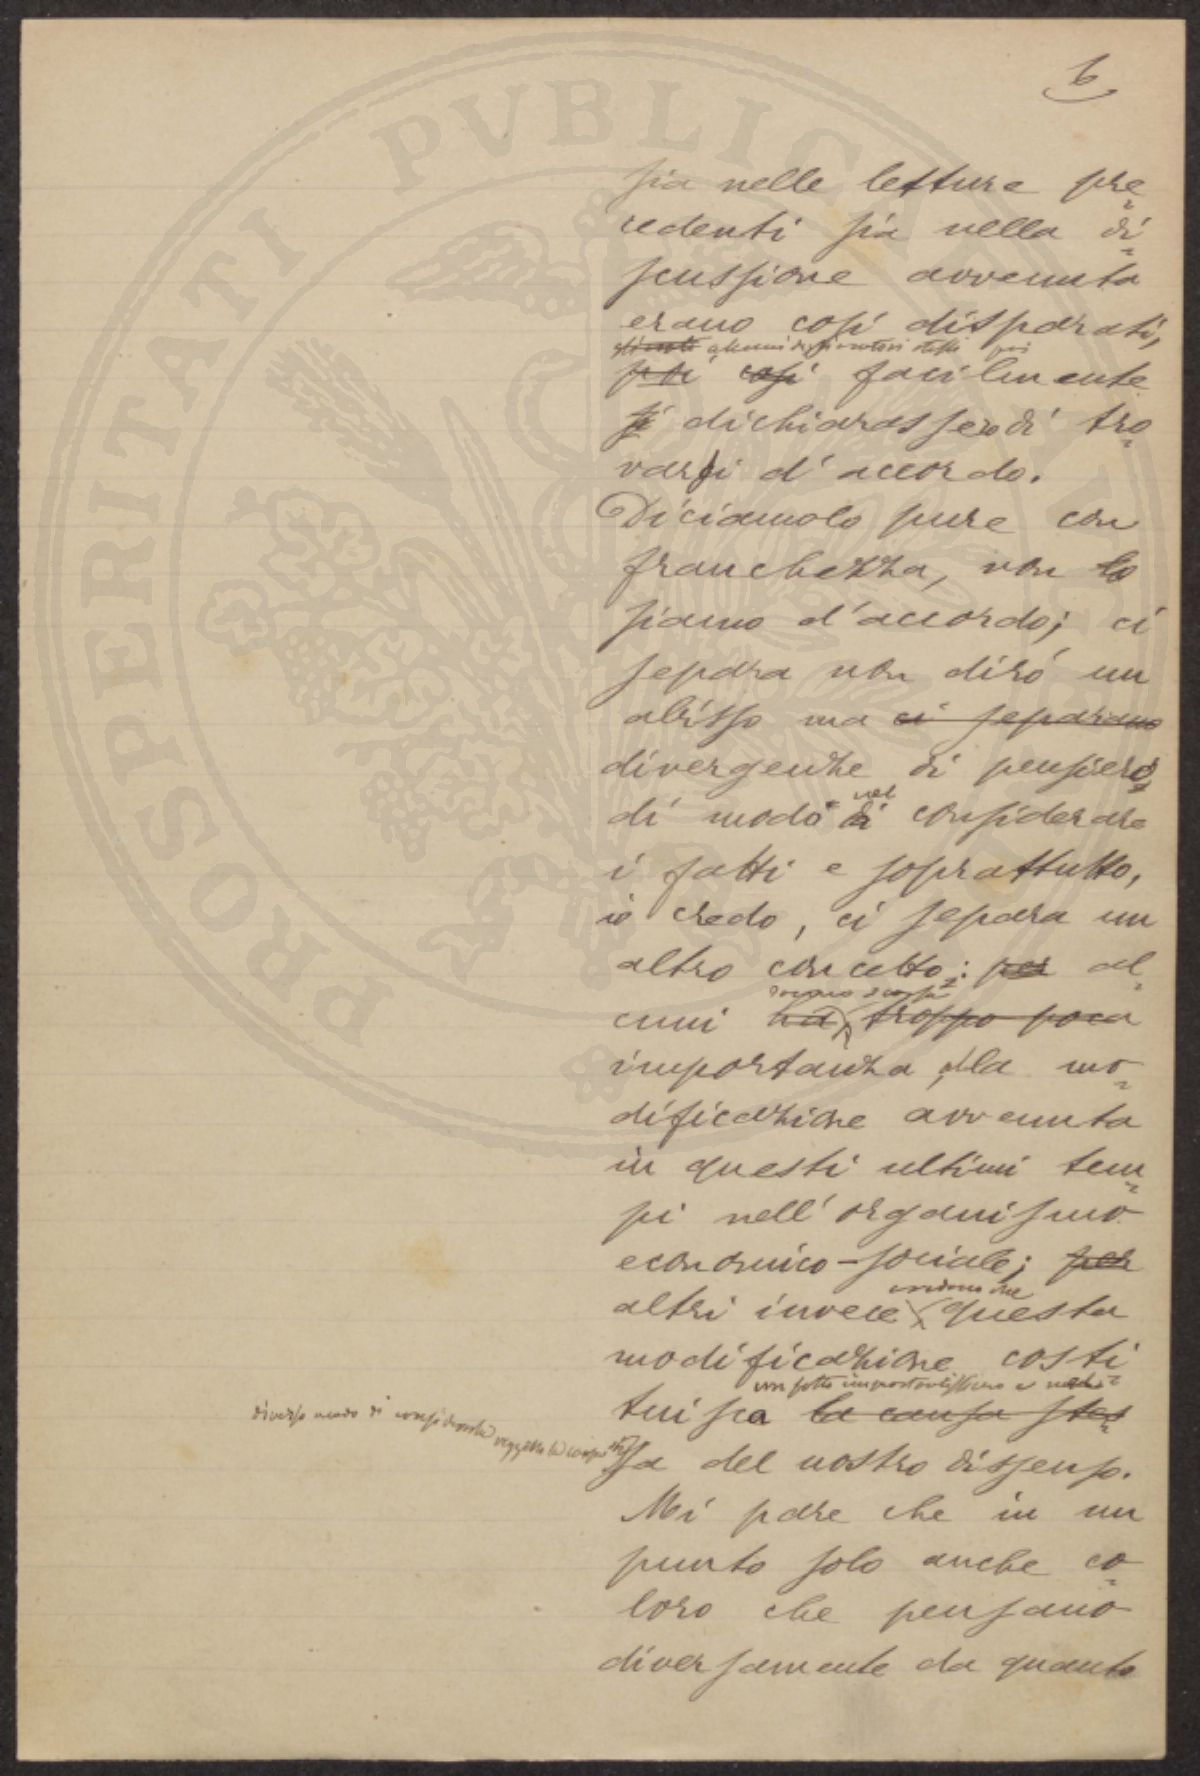 6
sia nelle letture pre
cedenti sia nella di
scussione avvenuta
erano così disparati,
alcuni poi
poi così facilmente
si dichiarassero di tro
varsi d'accordo.
Diciamolo pure con
franchezza, non lo
siamo d'accordo; ci
separa non dirò un
abisso ma ci separano
divergenze di pensiero
nel
di modo di considerare
i fatti e soprattutto,
io credo, ci separa un
altro concetto: per al
cuni ha troppo poca
importanza alla mo
dificazione avvenuta
in questi ultimi tem
pi nell'organismo
economico-sociale; per
credono che
altri invece questa
modificazione costi
un fatto importantissimo e nel
tuisca la causa stes
diverso modo di considerarla
sa del nostro dissenso.
Mi pare che in un
punto solo anche co
loro che pensano
diversamente da quanto
PROSPERITATI PVBLICAE